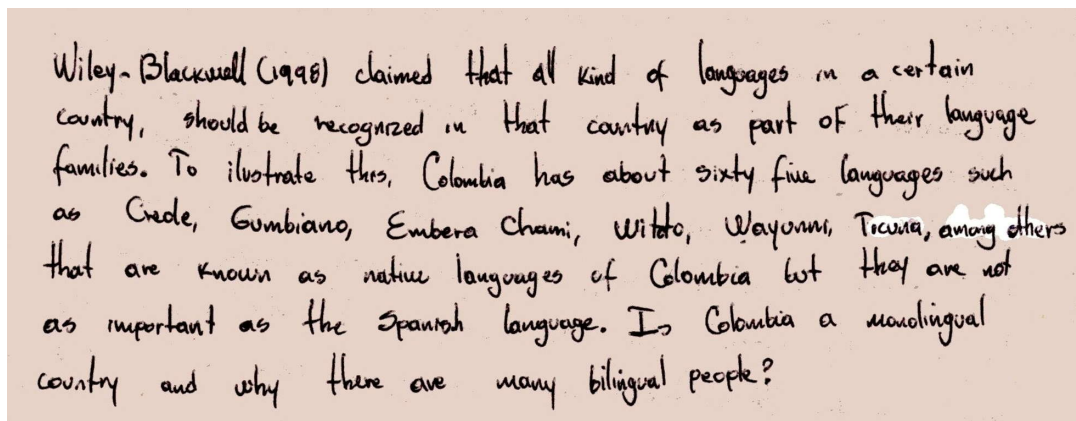 Wiley-Blackwell (1998) claimed that all kind of languages in a certain
country, should be recognized in that country as part of their language
families. To ilustrate this, Colombia has about sixty five languages such
as Creole, Gumbiano, Embera Chami, Witoto, Wayunni, Ticuna, among others
that are known as native languages of Colombia but they are not
as important as the Spanish language. Is Colombia a monolingual
country and why there are many bilingual people?